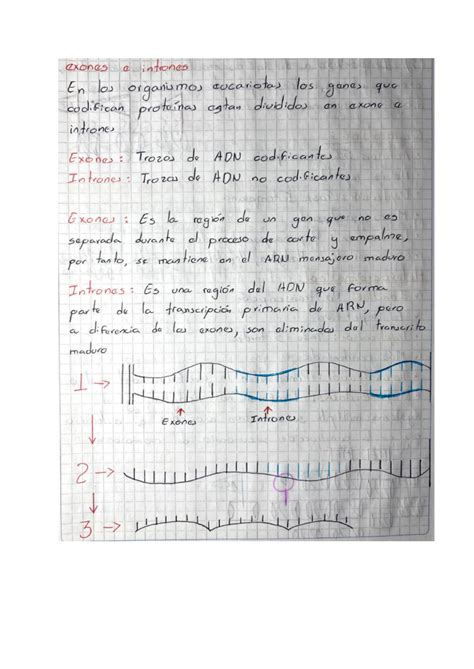 exones e intrones
En los organismos eucariotas los genes que
codifican proteínas estan divididos en exone e
intrones
Exones: Trozos de ADN codificantes
Intrones: Trozos de ADN no codificantes
Exones: Es la región de un gen que no es
separada durante el proceso de corte y empalme,
por tanto, se mantiene en el ARN mensajero maduro
Intrones: Es una región del ADN que forma
parte de la transcripción primaria de ARN, pero
a diferencia de los exones, son eliminados del transcrito
maduro
1 →
Exones Intrones
2 →
3 →